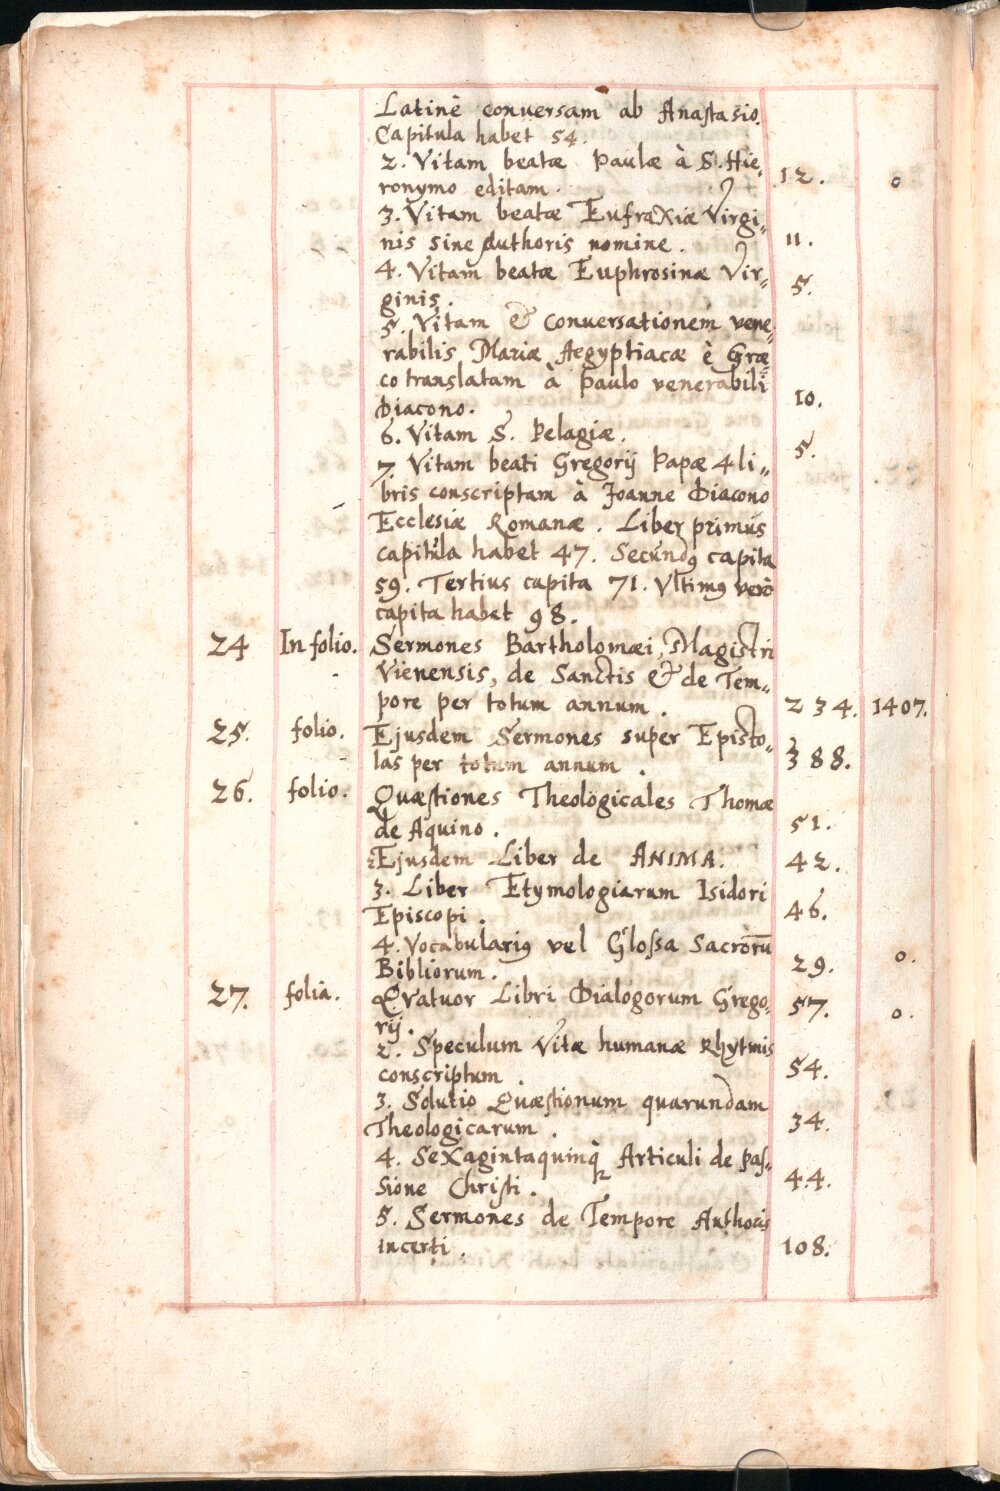 Latinè conuersam ab Anastasio.
Capitula habet 54.
2. Vitam beatæ Paulæ à S. Hie„ 12. 0
ronymo editam.
3. Vitam beatæ Eufraxiæ Virgi„
nis sine Authoris nomine. 11.
4. Vitam beatæ Euphrosinæ Vir„ 5.
ginis.
5. Vitam & conuersationem vene„
rabilis Mariæ Aegyptiacæ è Græ„
co translatam à Paulo venerabili 10.
Diacono.
6. Vitam S. Pelagiæ. 5.
7. Vitam beati Gregorij Papæ 4 li„
bris conscriptam à Joanne Diacono
Ecclesiæ Romanæ. Liber primus
capitula habet 47. Secundꝯ capita
59. Tertius capita 71. Vltimꝯ verò
capita habet 98.
24 In folio. Sermones Bartholomæi, Magistri
Vienensis, de Sanctis & de Tem„
pore per totum annum. 234. 1407.
25. folio. Ejusdem Sermones super Episto„
las per totum annum. 388.
26. folio. Quæstiones Theologicales Thomæ
de Aquino. 51.
2 Ejusdem Liber de ANIMA. 42.
3. Liber Etymologiarum Isidori
Episcopi. 46.
4. Vocabulariꝯ vel Glossa Sacrorū
Bibliorum. 29. 0.
27. folia. Quatuor Libri Dialogorum Grego„ 57. 0.
rij.
2. Speculum Vitæ humanæ Rhytmis
conscriptum. 54.
3. Solutio Quæstionum quarundam
Theologicarum. 34.
4. Sexagintaquinq̀ꝫ Articuli de Pas„
sione Christi. 44.
5. Sermones de Tempore Authoris
incerti. 108.